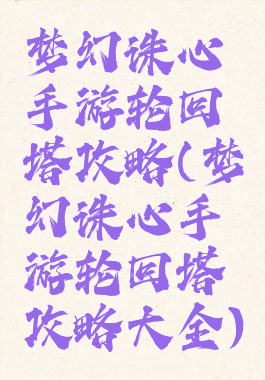 梦幻诛心
手游轮回
塔攻略(梦
幻诛心手
游轮回塔
攻略大全)